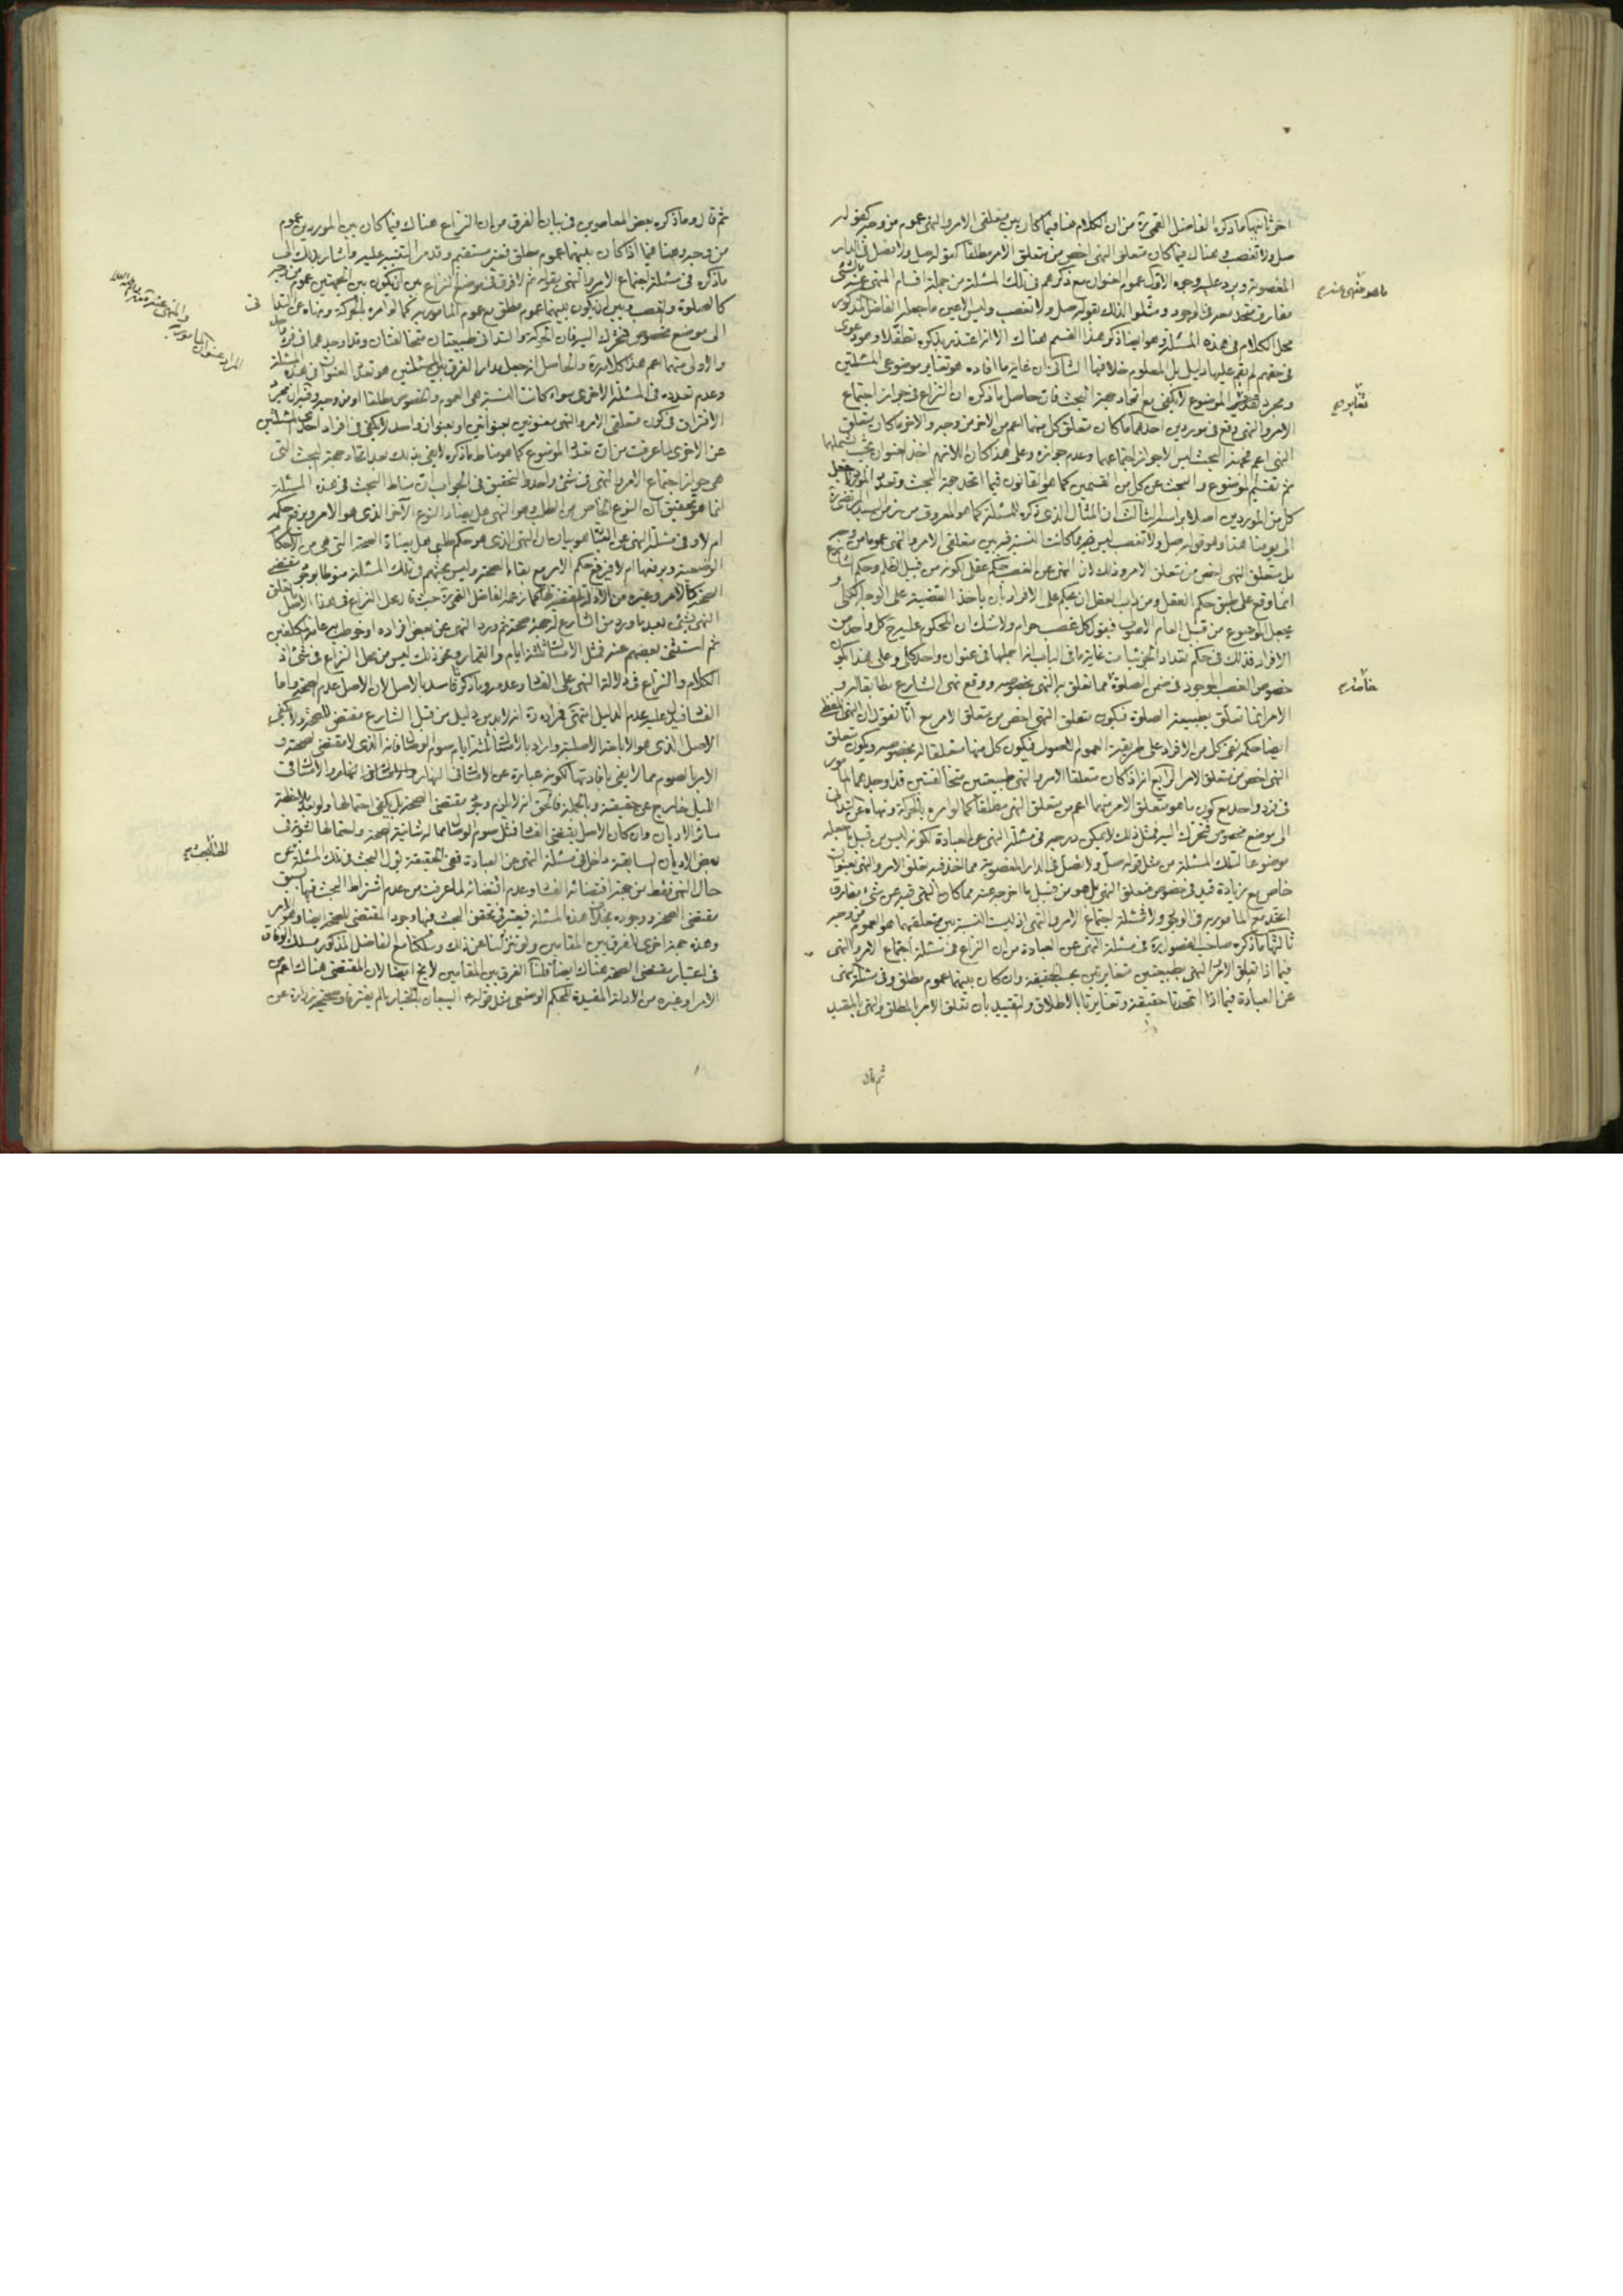 اخر ثانيها ما ذكره الفاضل القمي ره من ان الكلام هنا فيما كان بين متعلقى الامر والنهى عموم من وجه كقوله
صل ولا تغصب وهناك فيما كان متعلق النهى اخص من متعلق الامر مطلقا كقوله صل ولا تصل فى الدار
المغصوبة ويرد عليه وجوه الاول عموم العنوان مع ذكرهم فى تلك المسئلة من جملة اقسام المنهى عنه بالشئ
مفارق متحد معه فى الوجود ومثلوا لذلك بقوله صل ولا تغصب وليس هو الا عين ما جعله الفاضل المذكور
محل الكلام فى هذه المسئلة وهو ايضا ذكر هذا القسم هناك الا انه اعتذر بذكره تطفلا وهو دعوى
فى حقهم لم يقم عليها دليل بل المعلوم خلافها الثانى ان غاية ما افاده هو تغاير موضوعى المسئلتين
ومجرد تعدد الموضوع لا يكفى مع اتحاد جهة البحث فان حاصل ما ذكره ان النزاع فى جواز اجتماع
الامر والنهى وقع فى موردين احدهما ما كان متعلق كل منهما اعم من الاخر من وجه والاخر ما كان متعلق
النهى اعم فجهة البحث ليس الا جواز اجتماعهما وعدم جوازه وعلى هذا كان اللازم اخذ العنوان بحيث يشملهما
ثم تقسيم الموضوع والبحث عن كل من القسمين كما هو القانون فيما اتحد جهة البحث وتعدد المورد لا جعل
كل من الموردين اصلا براسه الثالث ان المثال الذى ذكره للمسئلة كما هو المعروف من زمن السيد المرتضى ره
الى يومنا هذا وهو قوله صل ولا تغصب ليس فيما كانت النسبة فيه بين متعلقى الامر والنهى عموما من وجه
بل متعلق النهى اخص من متعلق الامر وذلك لان النهى عن الغصب حكم عقلى لكونه من قبيل الظلم وحكم الشارع
انما وقع على طبق حكم العقل ومن داب العقل ان يحكم على الافراد بان ياخذ القضية على الوجه الكلى و
يجعل الموضوع من قبيل العام الاصولى فيقول كل غصب حرام ولا شك ان المحكوم عليه ح كل واحد من
الافراد فذلك فى حكم تعداد الجزئيات غاية ما فى الباب انه اجملها فى عنوان واحد كلى وعلى هذا يكون
خصوص الغصب الموجود فى ضمن الصلوة مما تعلق به النهى بخصوصه ووقع نهى الشارع مطابقا له و
الامر انما تعلق بطبيعة الصلوة فيكون متعلق النهى اخص من متعلق الامر مع انا نقول ان النهى اللفظى
ايضا حكمه نفى كل من الافراد على طريقة العموم الاصولى فيكون كل منها متعلقا له بخصوصه ويكون متعلق
النهى اخص من متعلق الامر الرابع انه اذ كان متعلقا الامر والنهى طبيعتين متخالفتين قد اوجدهما المامور
فى فرد واحد مع كون ما هو متعلق الامر منهما اعم من متعلق النهى مطلقا كما لو امره بالحركة ونهاه عن التدانى
الى موضع مخصوص فتحرك اليه فمثل ذلك لا يمكن درجه فى مسئلة النهى عن العبادة لكونه ليس من قبيل ما جعله
موضوعا لتلك المسئلة من مثل قوله صل ولا تصل فى الدار المغصوبة مما اخذ فيه متعلق الامر والنهى بعنوان
خاص مع زيادة قيد فى خصوص متعلق النهى بل هو من قبيل ما اخرجه عنه مما كان النهى فيه عن شئ مفارق
اتحد مع المامور به فى الوجود ولا فى مسئلة اجتماع الامر والنهى اذ ليست النسبة بين متعلقيهما هو العموم من وجه
ثالثها ما ذكره صاحب الفصول ره فى مسئلة النهى عن العبادة من ان النزاع فى مسئلة اجتماع الامر والنهى
فيما اذا تعلق الامر والنهى بطبيعتين متغايرتين بحسب الحقيقة وان كان بينهما عموم مطلق وفى مسئلة النهى
عن العبادة فيما اذا اتحدتا حقيقة وتغايرتا بالاطلاق والتقييد بان تعلق الامر بالمطلق والنهى بالمقيد
ثم قال
ثم قال وما ذكره بعض المعاصرين فى بيان الفرق من ان النزاع هناك فيما كان بين الموردين عموم
من وجه وهنا فيما اذا كان بينهما عموم مطلق فغير مستقيم وقد مر التنبيه عليه واشار بذلك الى
ما ذكره فى مسئلة اجتماع الامر والنهى بقوله ثم لا فرق فى موضع النزاع بين ان يكون بين الجهتين عموم من وجه
كالصلوة والغصب وبين ان يكون بينهما عموم مطلق مع عموم المامور به كما لو امره بالحركة ونهاه عن التدانى
الى موضع مخصوص فتحرك اليه فان الحركة والتدانى طبيعتان متخالفتان وقد اوجدهما فى فرد واحد
والاولى منهما اعم هذا كلامه ره والحاصل انه جعل مدار الفرق بين المسئلتين هو تعدد العنوان فى هذه المسئلة
وعدم تعدده فى المسئلة الاخرى سواء كانت النسبة هى العموم والخصوص مطلقا او من وجه وفيه ان مجرد
الافتراق فى كون متعلقى الامر والنهى معنونين بعنوانين او بعنوان واحد لا يكفى فى افراد احدى المسئلتين
عن الاخرى لما عرفت من ان تعدد الموضوع كما هو مناط ما ذكره لا يفى بذلك بعد اتحاد جهة البحث التى
هى جواز اجتماع الامر والنهى فى شئ واحد والتحقيق فى الجواب ان مناط البحث فى هذه المسئلة
انما هو تحقيق ان النوع الخاص من الطلب وهو النهى هل يضاد النوع الاخر الذى هو الامر ويرفع حكمه
ام لا وفى مسئلة النهى عن العبادة هو بيان ان النهى الذى هو حكم طلبى هل ينافى الصحة التى هى من الاحكام
الوضعية ويرفعها ام لا فيرفع حكم الامر مع بقاء الصحة وليس بحثهم فى تلك المسئلة منوطا بوجود مقتضى
الصحة كالامر وغيره من الادلة المقتضية لها كما زعمه الفاضل القمى ره حيث قال محل النزاع فى هذا الاصل ما تعلق
النهى بشئ بعد ما ورد من الشارع له جهة صحة ثم ورد النهى عن بعض افراده او خوطب به عامة المكلفين
ثم استثنى بعضهم عنه فمثل الامساك ثلثة ايام والقمار ونحو ذلك ليس من محل النزاع فى شئ اذ
الكلام والنزاع فى دلالة النهى على الفساد وعدمه وما ذكر فاسد بالاصل لان الاصل عدم الصحة واما
الفساد فيدل عليه عدم الدليل انتهى فمراده ره انه لا بد من دليل من قبل الشارع مقتضى للصحة ولا يكفى
الاصل الذى هو الاباحة الاصلية واراد بالامساك ثلثة ايام صوم الوصال فانه الذى لا مقتضى لصحته و
الامر بالصوم مما لا يفى بافادتها لكونه عبارة عن الامساك فى النهار والامساك فى
الليل خارج عن حقيقته وبالجملة فالحق انه لا يلزم وجود مقتضى الصحة بل يكفى احتمالها ولو بملاحظة
سائر الاديان وان كان الاصل يقتضى الفساد فمثل صوم الوصال مما له شانية الصحة واحتمالها لثبوته فى
بعض الاديان السابقة داخل فى مسئلة النهى عن العبادة ففى الحقيقة يؤل البحث فى تلك المسئلة عن
حال النهى فقط من جهة اقتضائه الفساد وعدم اقتضائه لما عرفت من عدم اشتراط البحث فيها بسبق
مقتضى الصحة ووجوده بخلاف هذه المسئلة فيعتبر فى تحقق البحث فيها وجود المقتضى للصحة ايضا وهو الامر
وهذه جهة اخرى للفرق بين المقامين ولو تنزلنا عن ذلك وسلكنا مع الفاضل المذكور مسلك الوفاق
فى اعتبار مقتضى الصحة هناك ايضا قلنا الفرق بين المقامين لائح ايضا لان المقتضى هناك اعم من
الامر وغيره من الادلة المفيدة للحكم الوضعى مثل قوله ع البيعان بالخيار ما لم يفترقا وصحيحة زرارة عن